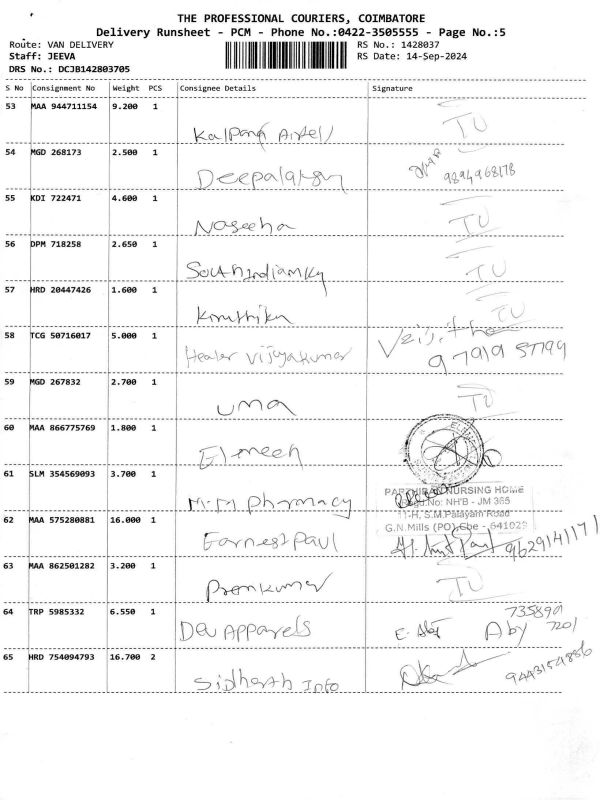 THE PROFESSIONAL COURIERS, COIMBATORE
Delivery Runsheet - PCM - Phone No.:0422-3505555 - Page No.:5
Route: VAN DELIVERY RS No.: 1428037
Staff: JEEVA RS Date: 14-Sep-2024
DRS No.: DCJB142803705
S No Consignment No Weight PCS Consignee Details Signature
53 MAA 944711154 9.200 1
Kalpana Airtel TU
54 MGD 268173 2.500 1
Deepalakshmy 9894968178
55 KDI 722471 4.600 1
Naseeha TU
56 DPM 718258 2.650 1
South Indian Ky TU
57 HRD 20447426 1.600 1
Kiruthika TU
58 TCG 50716017 5.000 1
Healer Vijayakumar 97919 57799
59 MGD 267832 2.700 1
Uma TU
60 MAA 866775769 1.800 1
61 SLM 354569093 3.700 1
M.M Pharmacy
PARTHIBAN NURSING HOME
Regd.No: NHB - JM 365
11-H, S.M.Palayam Road
G.N.Mills (PO) Cbe - 641029
62 MAA 575280881 16.000 1
Earnest Paul 9629141171
63 MAA 862501282 3.200 1
Premkumar TU
64 TRP 5985332 6.550 1
Dev Apparels E. Aby Aby 735890
7201
65 HRD 754094793 16.700 2
Sidharth Info 9443154886